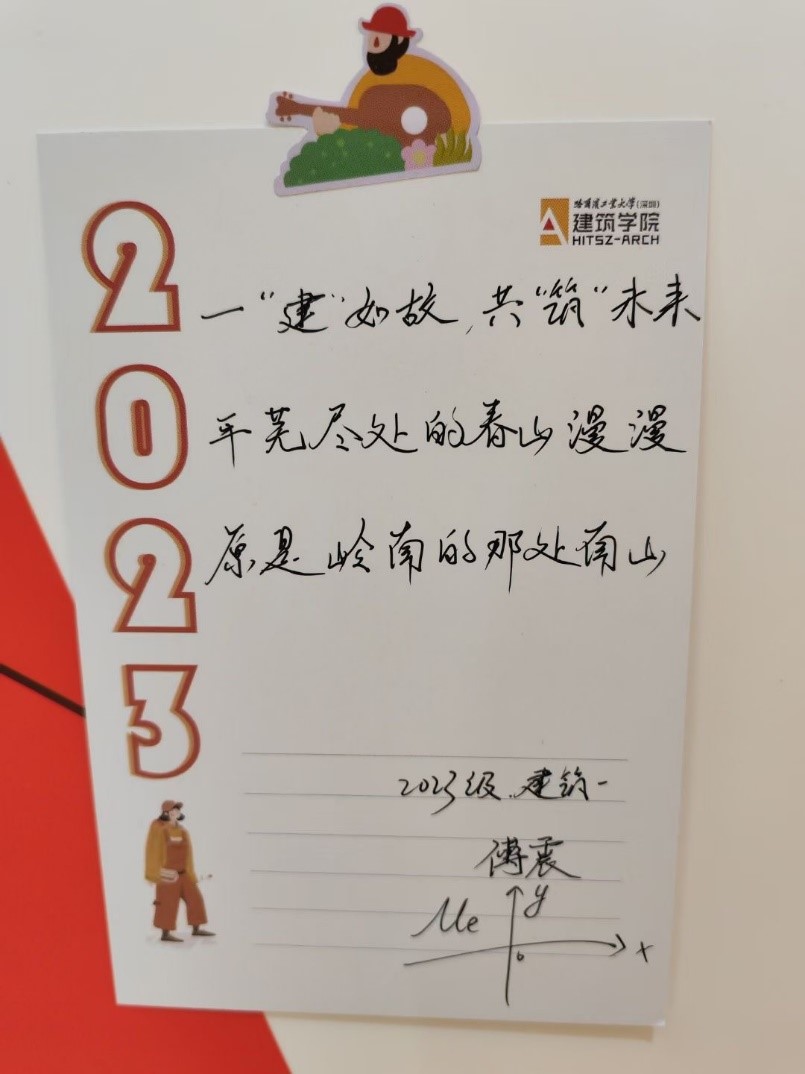 哈尔滨工业大学(深圳)
建筑学院
HITSZ-ARCH
2023
一“建”如故,共“筑”未来
平芜尽处的春山漫漫
原是岭南的那处南山
2023级.建筑一
傅震
Me
y
o
x